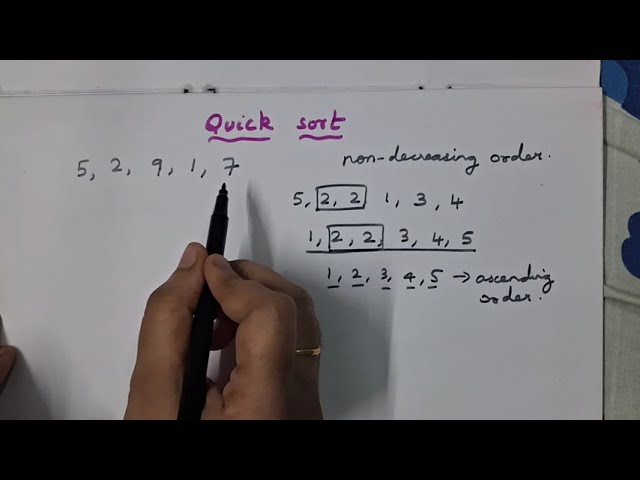 Quick sort
5, 2, 9, 1, 7
non-decreasing order.
5, 2, 2 1, 3, 4
1, 2, 2, 3, 4, 5
1, 2, 3, 4, 5 → ascending
order.